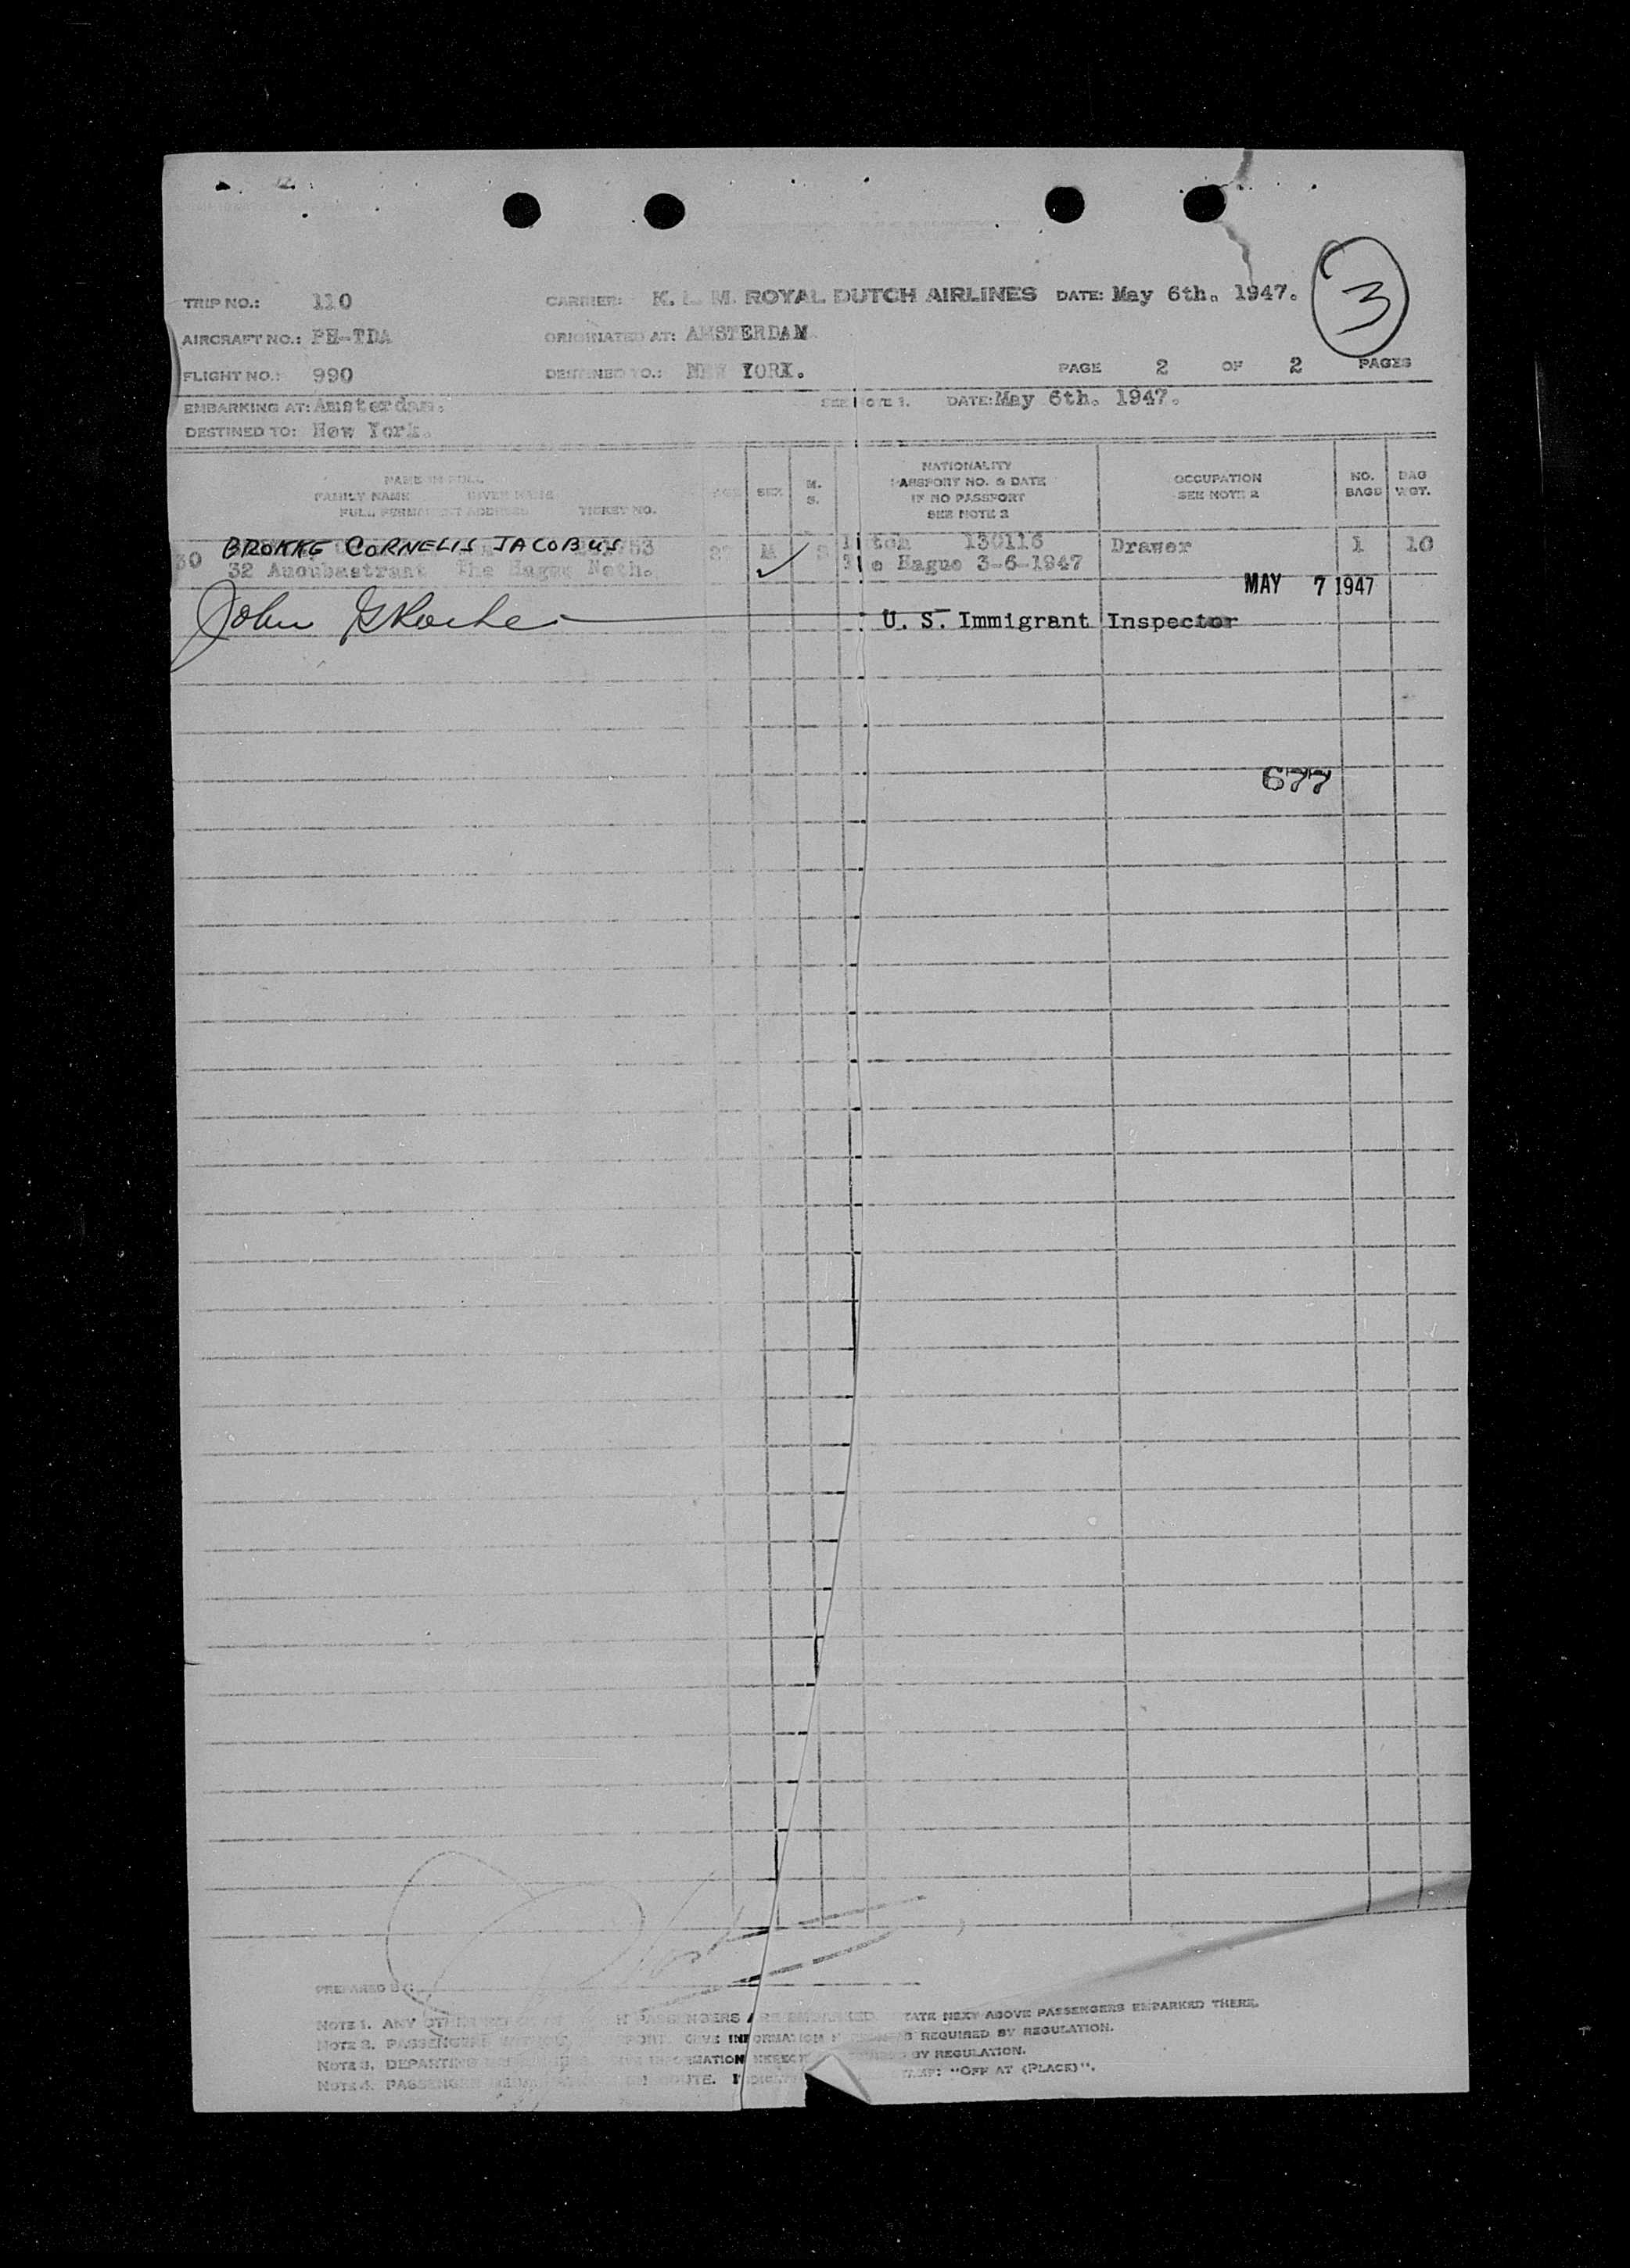 3
TRIP NO.: 110 CARRIER: K. L. M. ROYAL DUTCH AIRLINES DATE: May 6th. 1947.
AIRCRAFT NO.: PH-TDA ORIGINATED AT: AMSTERDAM
FLIGHT NO.: 990 DESTINED TO.: NEW YORK. PAGE 2 OF 2 PAGES
EMBARKING AT: Amsterdam. SEE NOTE 1. DATE: May 6th. 1947.
DESTINED TO: New York.
NAME IN FULL
FAMILY NAME GIVEN NAME
FULL PERMANENT ADDRESS TICKET NO.
AGE SEX M. S.
NATIONALITY
PASSPORT NO. & DATE
IF NO PASSPORT
SEE NOTE 2
OCCUPATION
SEE NOTE 2
NO. BAGS
BAG WGT.
30 BROKKE CORNELIS JACOBUS 53 M S tch 130116 Drawer 1 10
32 The Hague Neth. e Hague 3-6-1947
MAY 7 1947
John U. S. Immigrant Inspector
677
PREPARED BY:
NOTE 1. ANY PASSENGERS ARE EMBARKED STATE NEXT ABOVE PASSENGERS EMBARKED THERE.
NOTE 2. PASSENGERS GIVE INFORMATION REQUIRED BY REGULATION.
NOTE 3. DEPARTING INFORMATION BY REGULATION.
NOTE 4. PASSENGER ROUTE. "OFF AT (PLACE)".